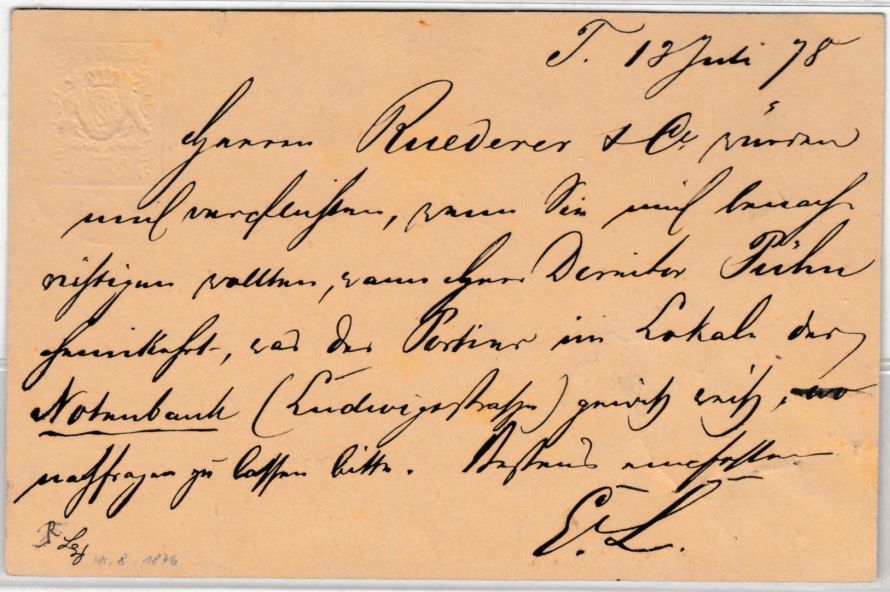 T. 13 Juli 78
Herren Ruederer & Co. würden
mich verpflichten, wenn Sie mich benach-
richtigen wollten, wann Herr Direktor Pühn
heimkehrt, was der Portier im Lokale der
Notenbank (Ludwigstrasse) gewiß weiß, wo
nachfragen zu lassen bitte. Bestens empfohlen
E. L.
8 1876